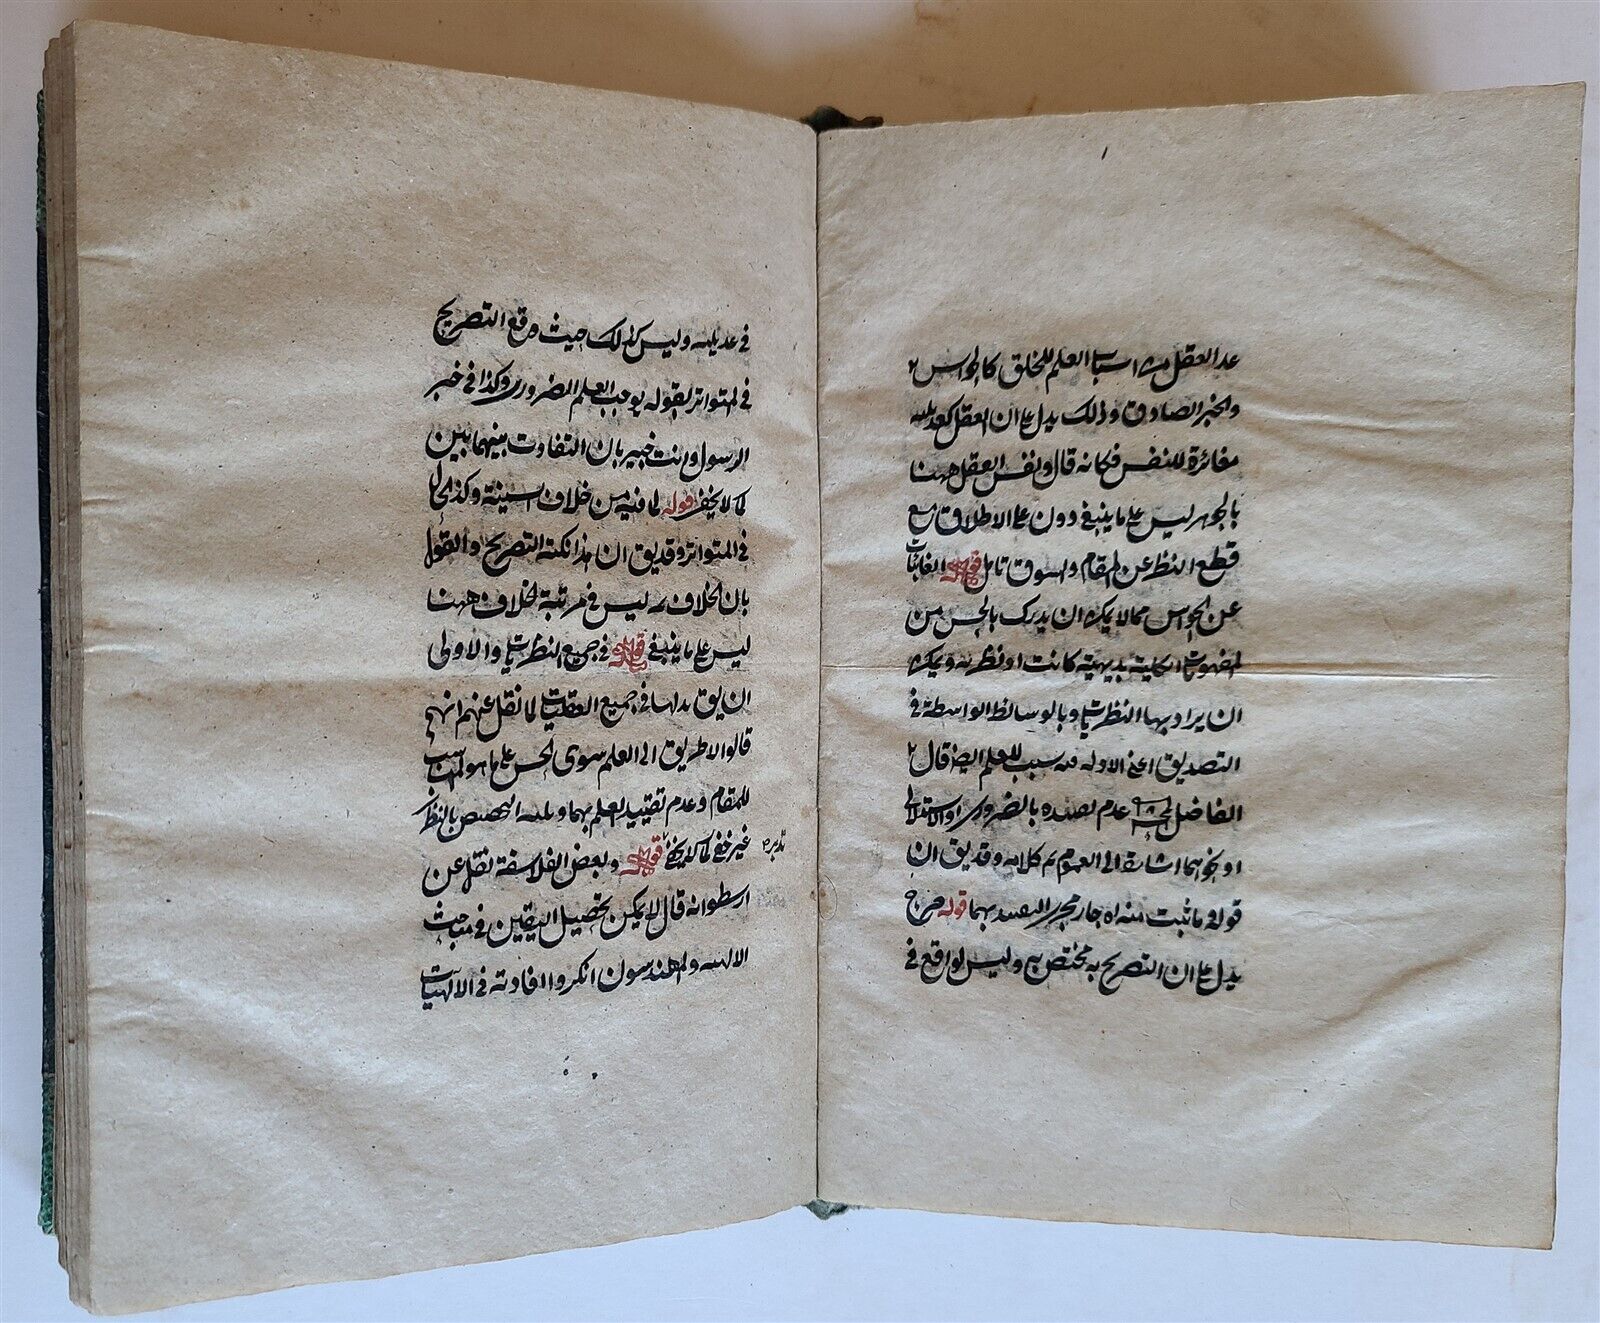 عد العقل من اسباب العلم للخلق كالحواس
والخبر الصادق وذلك يدل على ان العقل كعديليه
مغائرة للنفس فكانه قال ونفس العقل ههنا
بالجوهر ليس على ما ينبغي دون على الاطلاق مع
قطع النظر عن المقام والسوق تامل قوله الغائبات
عن الحواس مما لا يمكن ان يدرك بالحس من
المفهومات الكلية بديهية كانت او نظرية ويمكن
ان يراد بها النظريات وبالوسائط الواسطة في
التصديق اعني الادلة سبب للعلم ايضا قال
الفاضل المحشي عدم تقييده بالضروري او الاستدلالي
او نحوهما اشارة الى العموم تم كلامه وقد يق ان
قوله وما ثبت منه اه جار مجرى التقييد بهما قوله صرح
يدل على ان التصريح به مختص به وليس لواقع في
في عديليه وليس كذلك حيث وقع التصريح
في المتواتر بقوله يوجب العلم الضروري وكذا في خبر
الرسول وانت خبير بان التفاوت بينهما بين
كما لا يخفى قوله لما فيه من خلاف السمنية وكذا الحال
في المتواتر وقد يق ان هذا نكتة التصريح والقول
بان الخلاف ثمه ليس في مرتبة الخلاف ههنا
ليس على ما ينبغي قوله في جميع النظريات والاولى
ان يق بدلها في جميع العقليات لما نقل عنهم انهم
قالوا لا طريق الى العلم سوى الحس على ما هو المناسب
للمقام وعدم تقييد العلم بهما التخصيص بالنظر
غير خفي كما لا يخفى قوله وبعض الفلاسفة نقل عن
تدبره
ارسطو انه قال لا يمكن تحصيل اليقين في مباحث
الالهية والمهندسون انكروا افادته في الالهيات